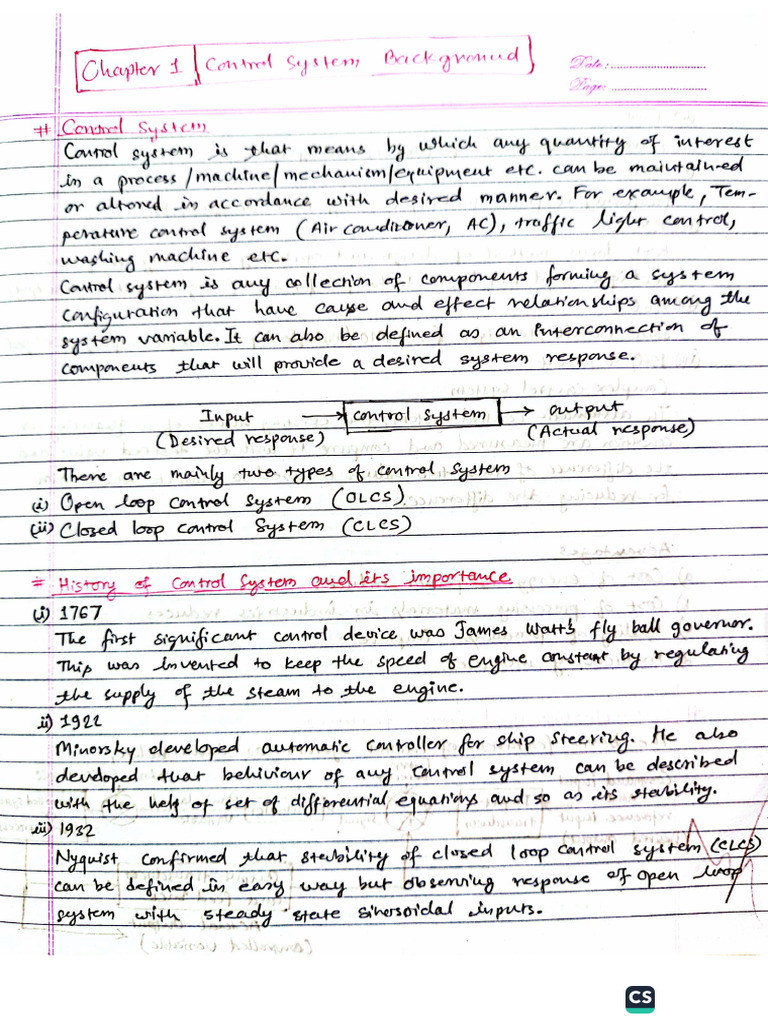 Chapter 1 Control System Background
Date:
Page:
# Control System
Control system is that means by which any quantity of interest
in a process/machine/mechanism/equipment etc. can be maintained
or altered in accordance with desired manner. For example, Tem-
perature control system (Air conditioner, AC), traffic light control,
washing machine etc.
Control system is any collection of components forming a system
configuration that have cause and effect relationships among the
system variable. It can also be defined as an interconnection of
components that will provide a desired system response.
Input → control system → output
(Desired response) (Actual response)
There are mainly two types of control system
(i) Open loop control system (OLCS)
(ii) Closed loop control system (CLCS)
= History of control system and its importance
(i) 1767
The first significant control device was James Watt's fly ball governor.
This was invented to keep the speed of engine constant by regulating
the supply of the steam to the engine.
ii) 1922
Minorsky developed automatic controller for ship steering. He also
developed that behiviour of any control system can be described
with the help of set of differential equations and so as its stability.
iii) 1932
Nyquist confirmed that stability of closed loop control system (CLCS)
can be defined in easy way but observing response of open loop
system with steady state sinersoidal inputs.
CS